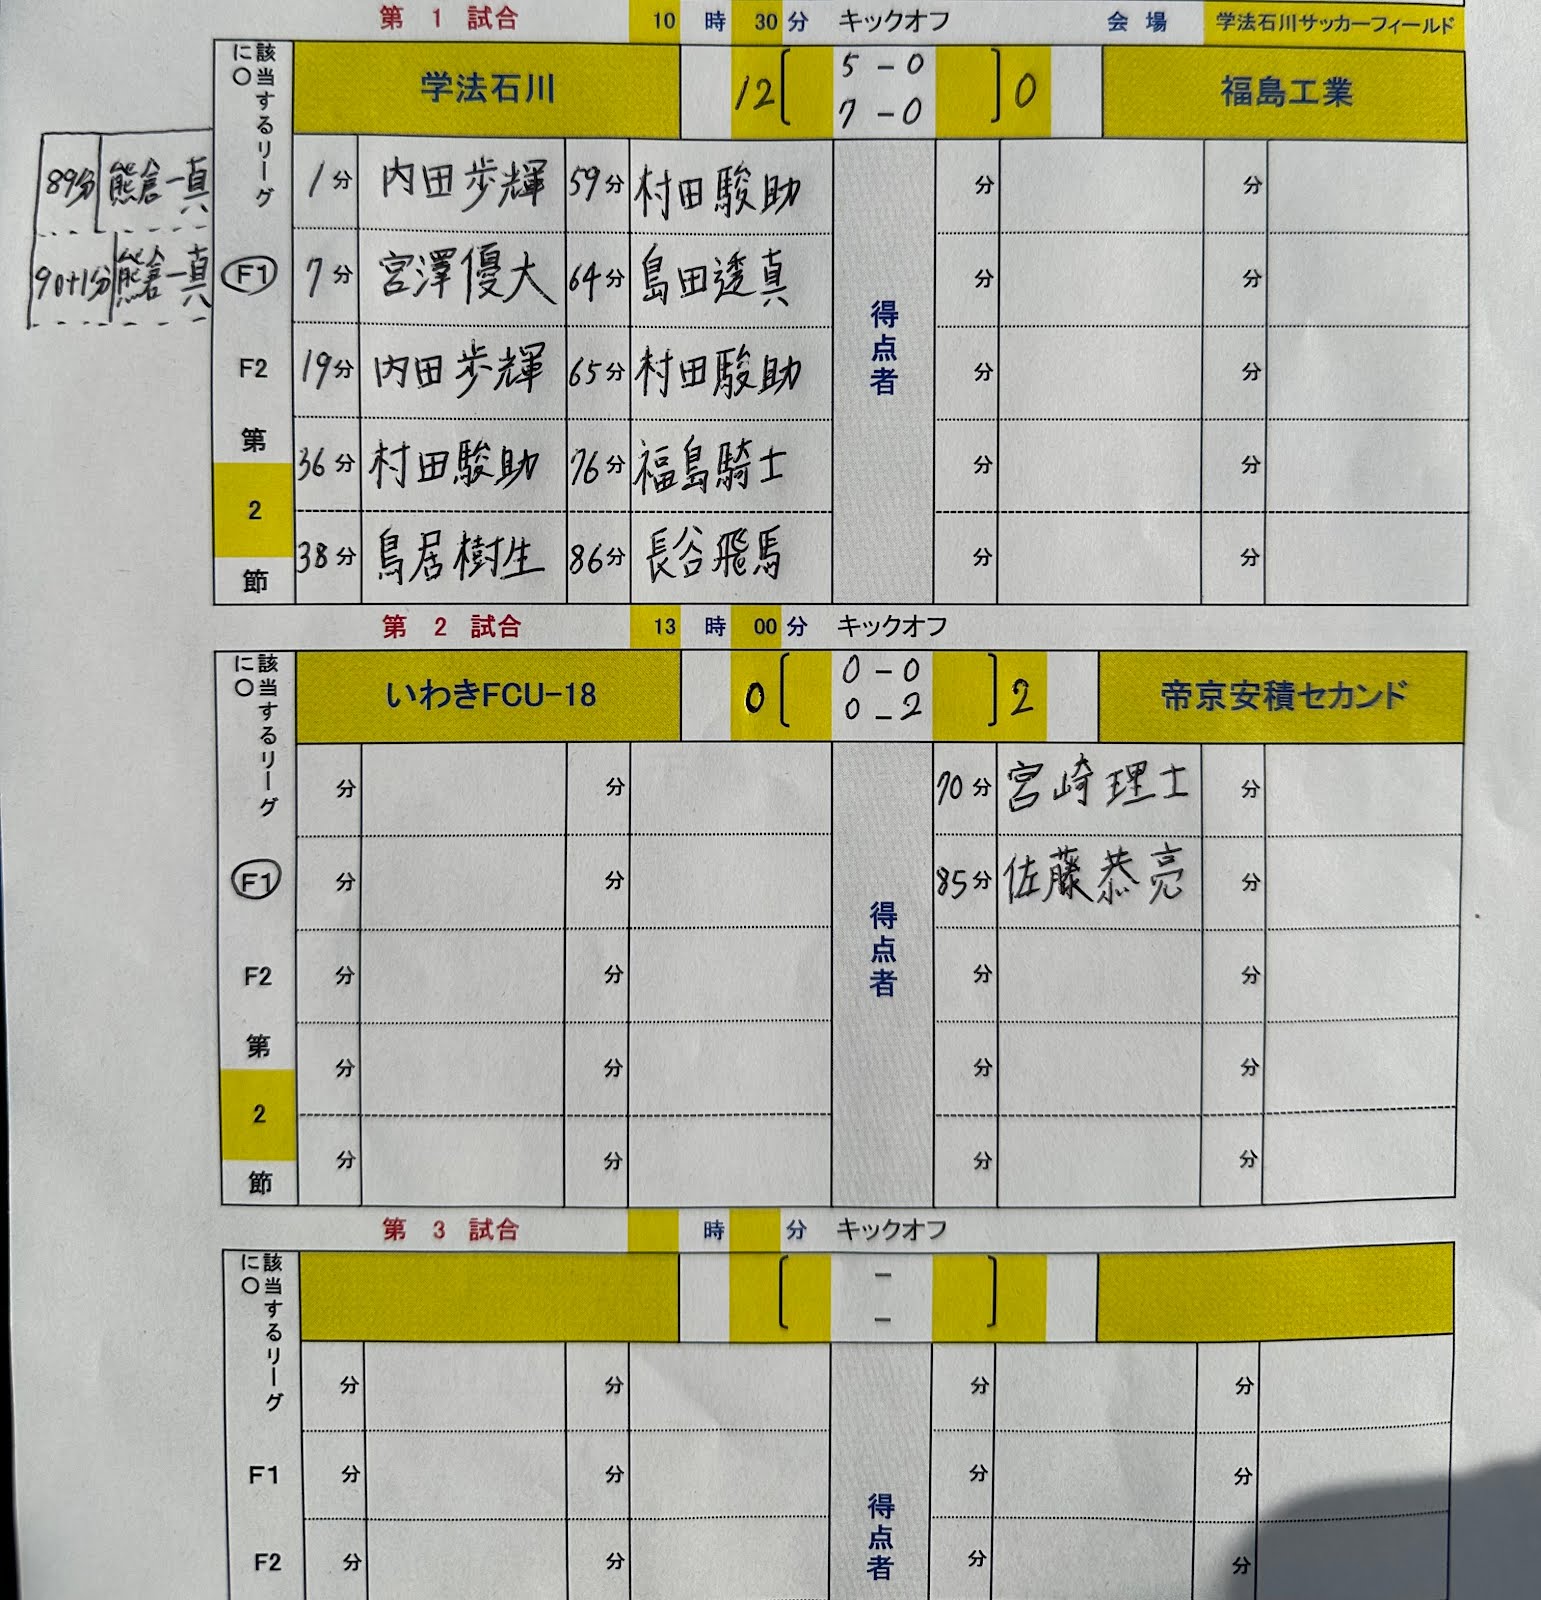 第 1 試合 10 時 30 分 キックオフ 会場 学法石川サッカーフィールド
該当するリーグに○
学法石川 12 [ 5 - 0 ] 0 福島工業
7 - 0
89分 熊倉一真
90+1分 熊倉一真
1分 内田歩輝 59分 村田駿助 分 分
F1 7分 宮澤優大 64分 島田透真 分 分
F2 19分 内田歩輝 65分 村田駿助 得点者 分 分
第 36分 村田駿助 76分 福島騎士 分 分
2
節 38分 鳥居樹生 86分 長谷飛馬 分 分
第 2 試合 13 時 00 分 キックオフ
該当するリーグに○
いわきFCU-18 0 [ 0 - 0 ] 2 帝京安積セカンド
0 - 2
分 分 70分 宮崎理士 分
F1 分 分 85分 佐藤恭亮 分
F2 分 分 得点者 分 分
第 分 分 分 分
2
節 分 分 分 分
第 3 試合 時 分 キックオフ
該当するリーグに○
[ - ]
-
分 分 分 分
F1 分 分 分 分
F2 分 分 得点者 分 分